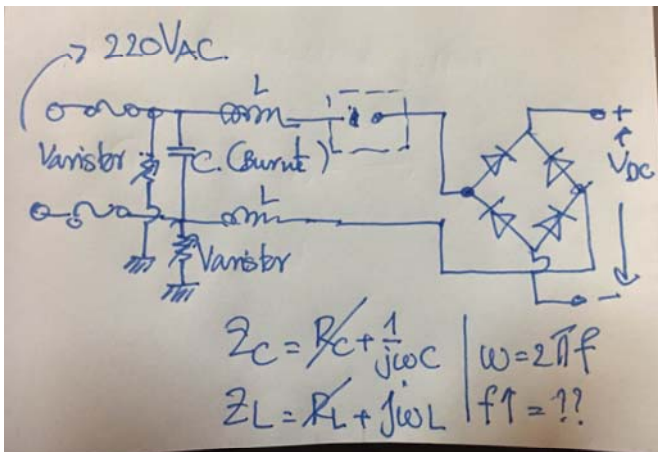 220VAC.
L
Varistor
C. (Burnt)
L
Varistor
+
VDC
-
ZC = RC + 1/jωC
ω = 2πf
ZL = RL + jωL
f↑ = ??